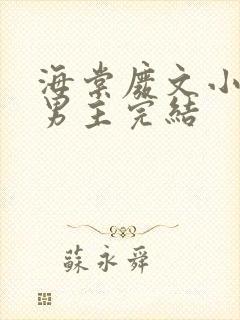 海棠廢文小
男主完結
蘇永舜